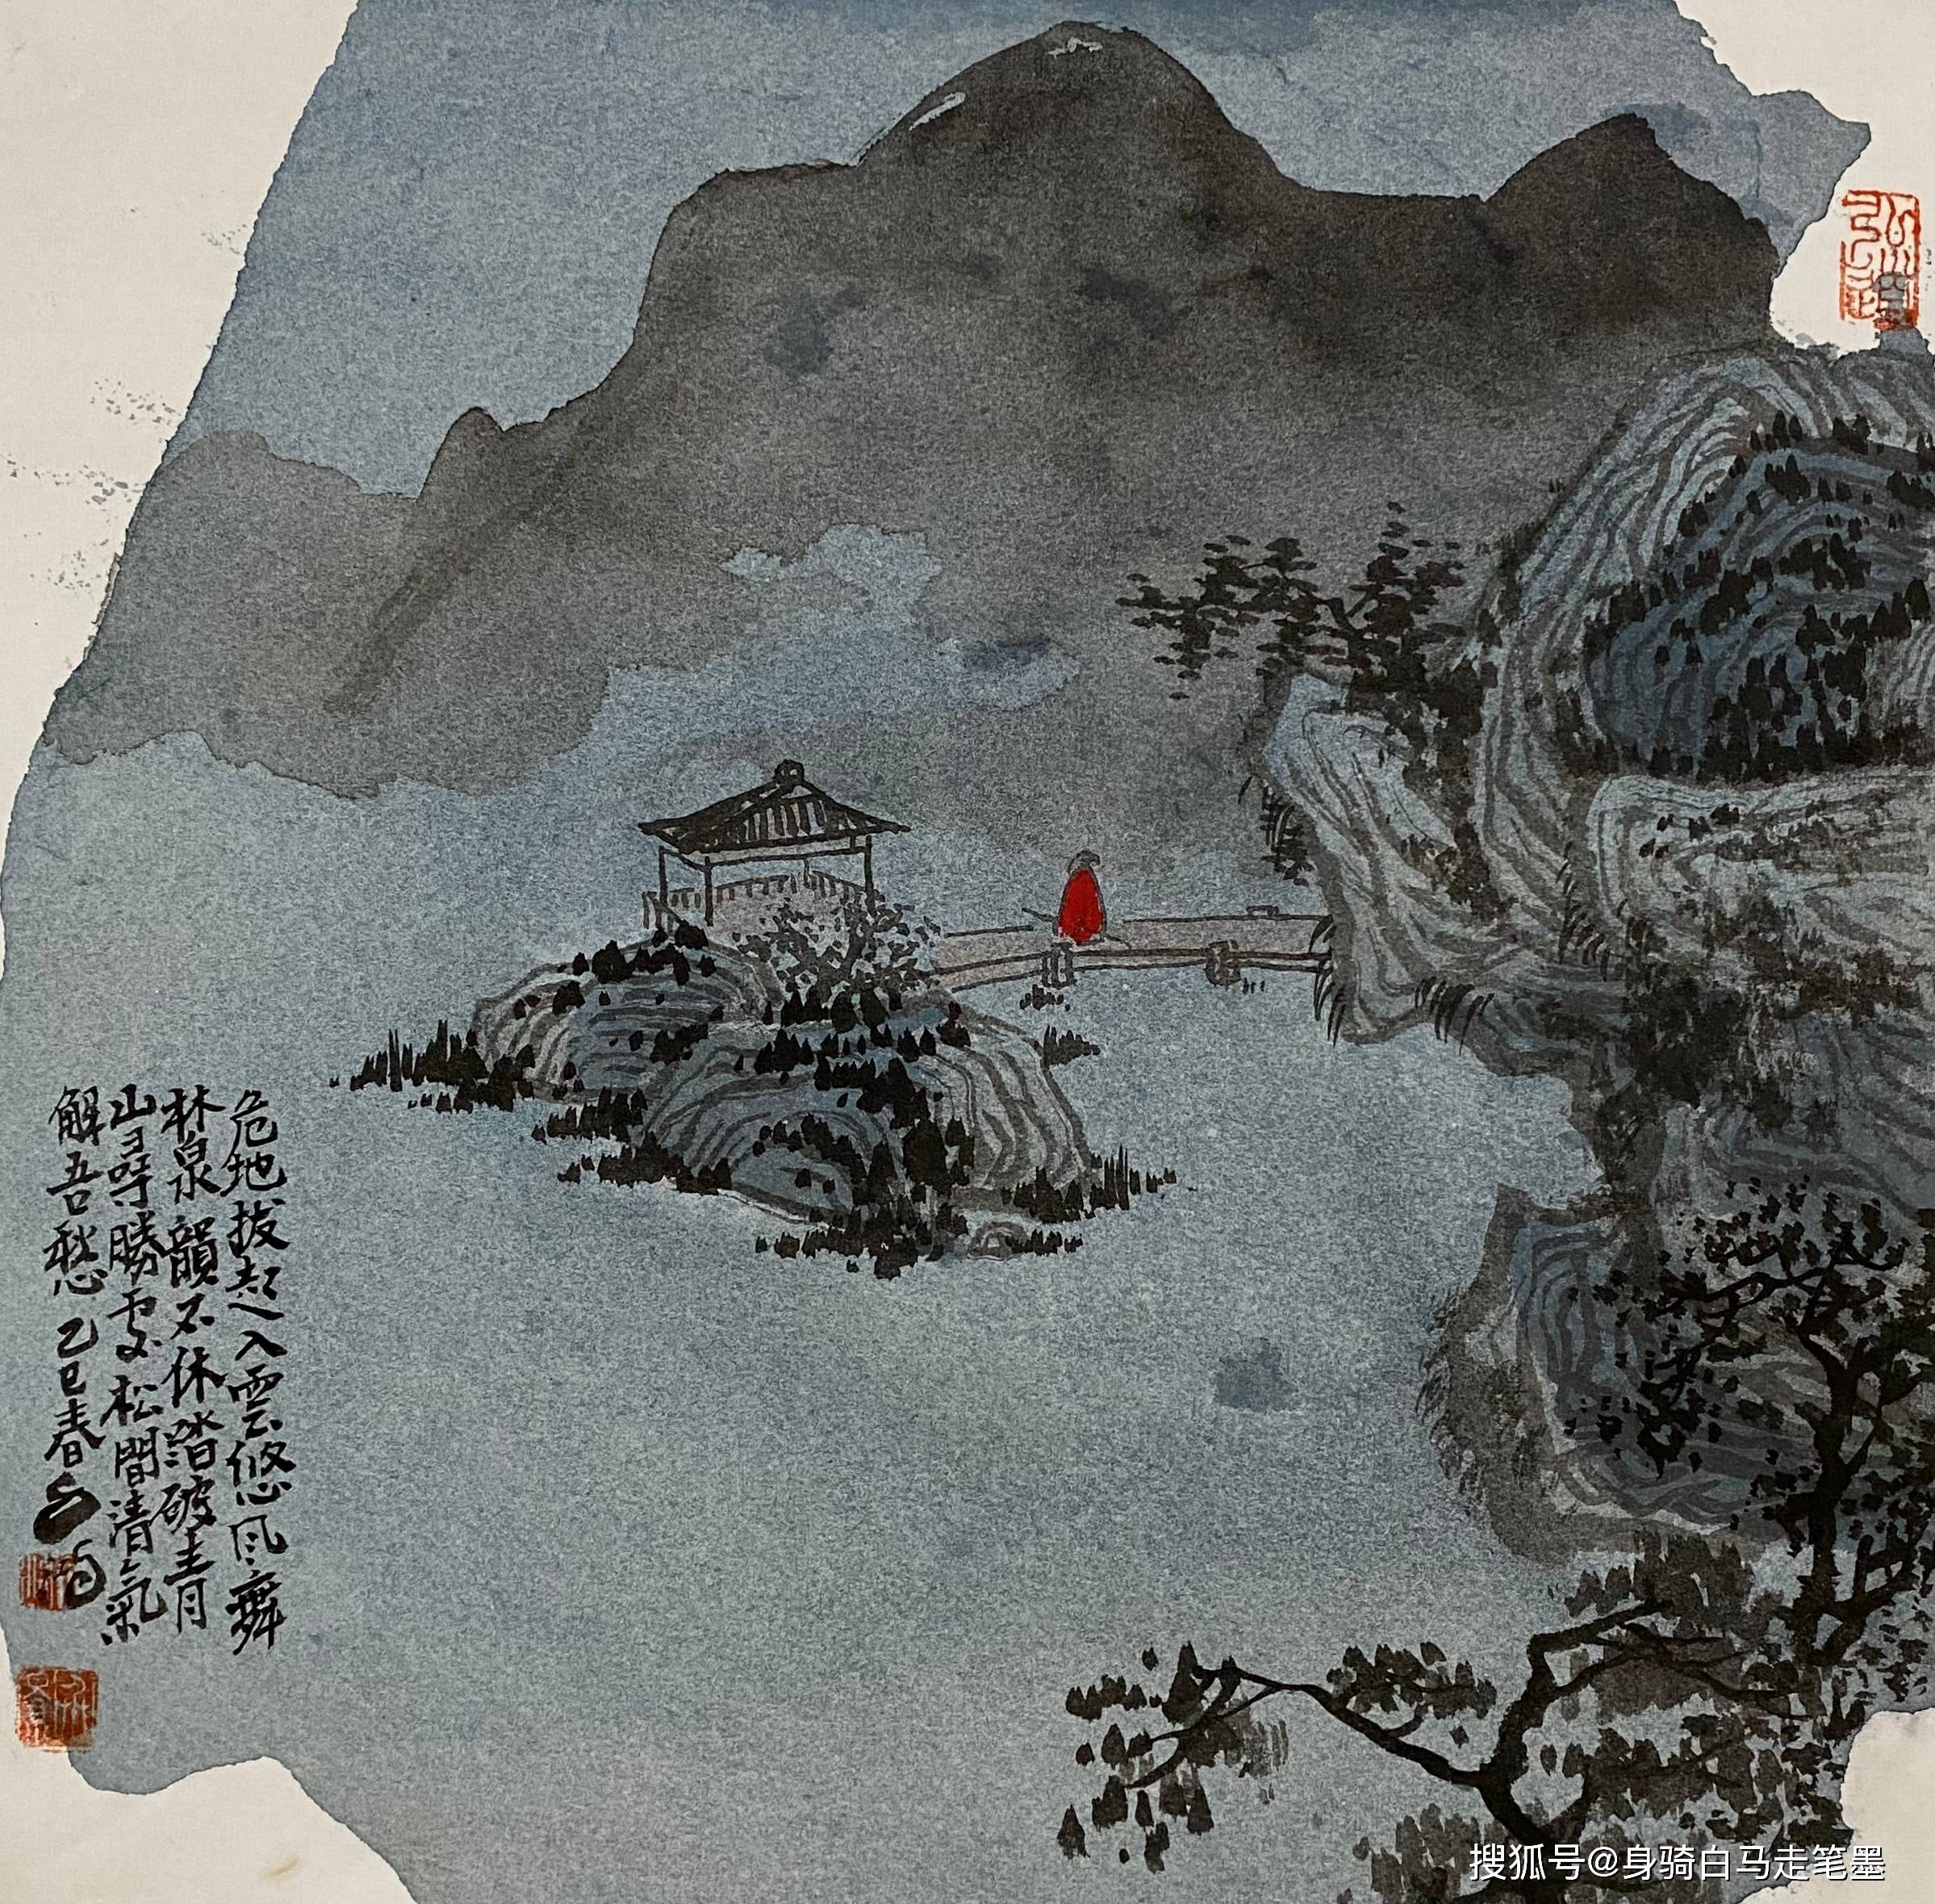 危地拔起入雲悠風舞
林泉韻不休踏破青
山尋勝處松間清氣
解吾愁 乙巳春
搜狐号@身骑白马走笔墨